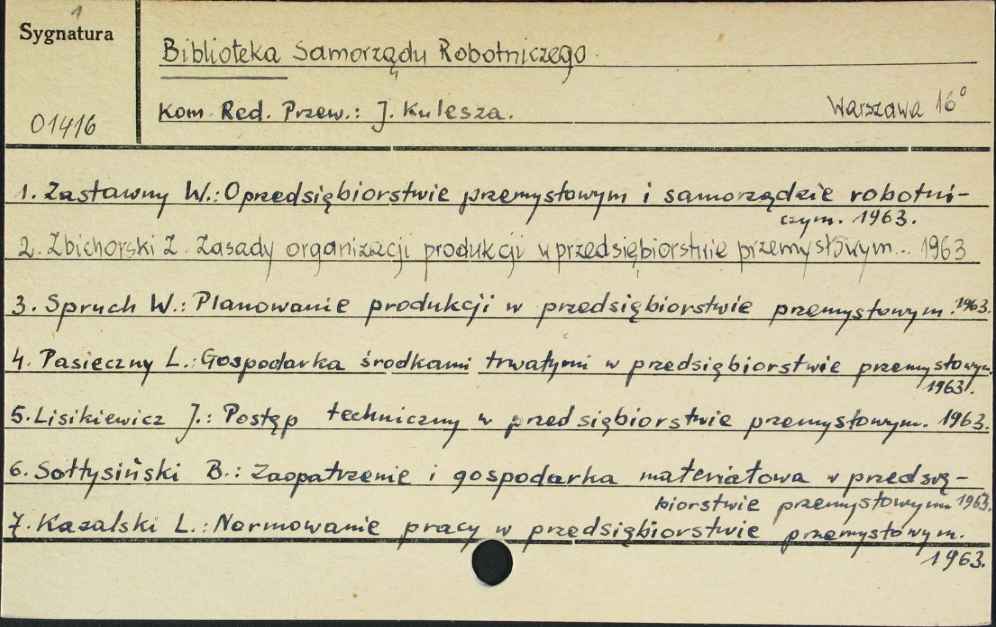 1
Sygnatura
Biblioteka Samorządu Robotniczego.
Kom. Red. Przew.: J. Kulesza.
Warszawa 16°
01416
1. Zastawny W.: O przedsiębiorstwie przemysłowym i samorządzie robotni-
czym. 1963.
2. Zbichorski Z. Zasady organizacji produkcji w przedsiębiorstwie przemysłowym... 1963
3. Spruch W.: Planowanie produkcji w przedsiębiorstwie przemysłowym. 1963.
4. Pasieczny L.: Gospodarka środkami trwałymi w przedsiębiorstwie przemysłowym.
1963.
5. Lisikiewicz J.: Postęp techniczny w przedsiębiorstwie przemysłowym. 1963.
6. Sołtysiński B.: Zaopatrzenie i gospodarka materiałowa w przedsię-
biorstwie przemysłowym 1963.
7. Kazalski L.: Normowanie pracy w przedsiębiorstwie przemysłowym.
1963.